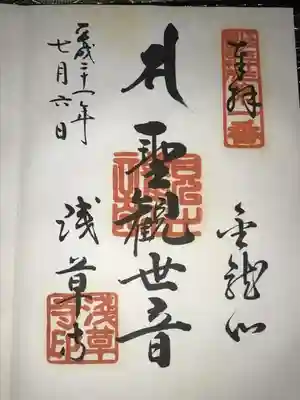 奉拝
金龍山
聖観世音
平成十一年
七月六日
浅草寺
浅草
寺印